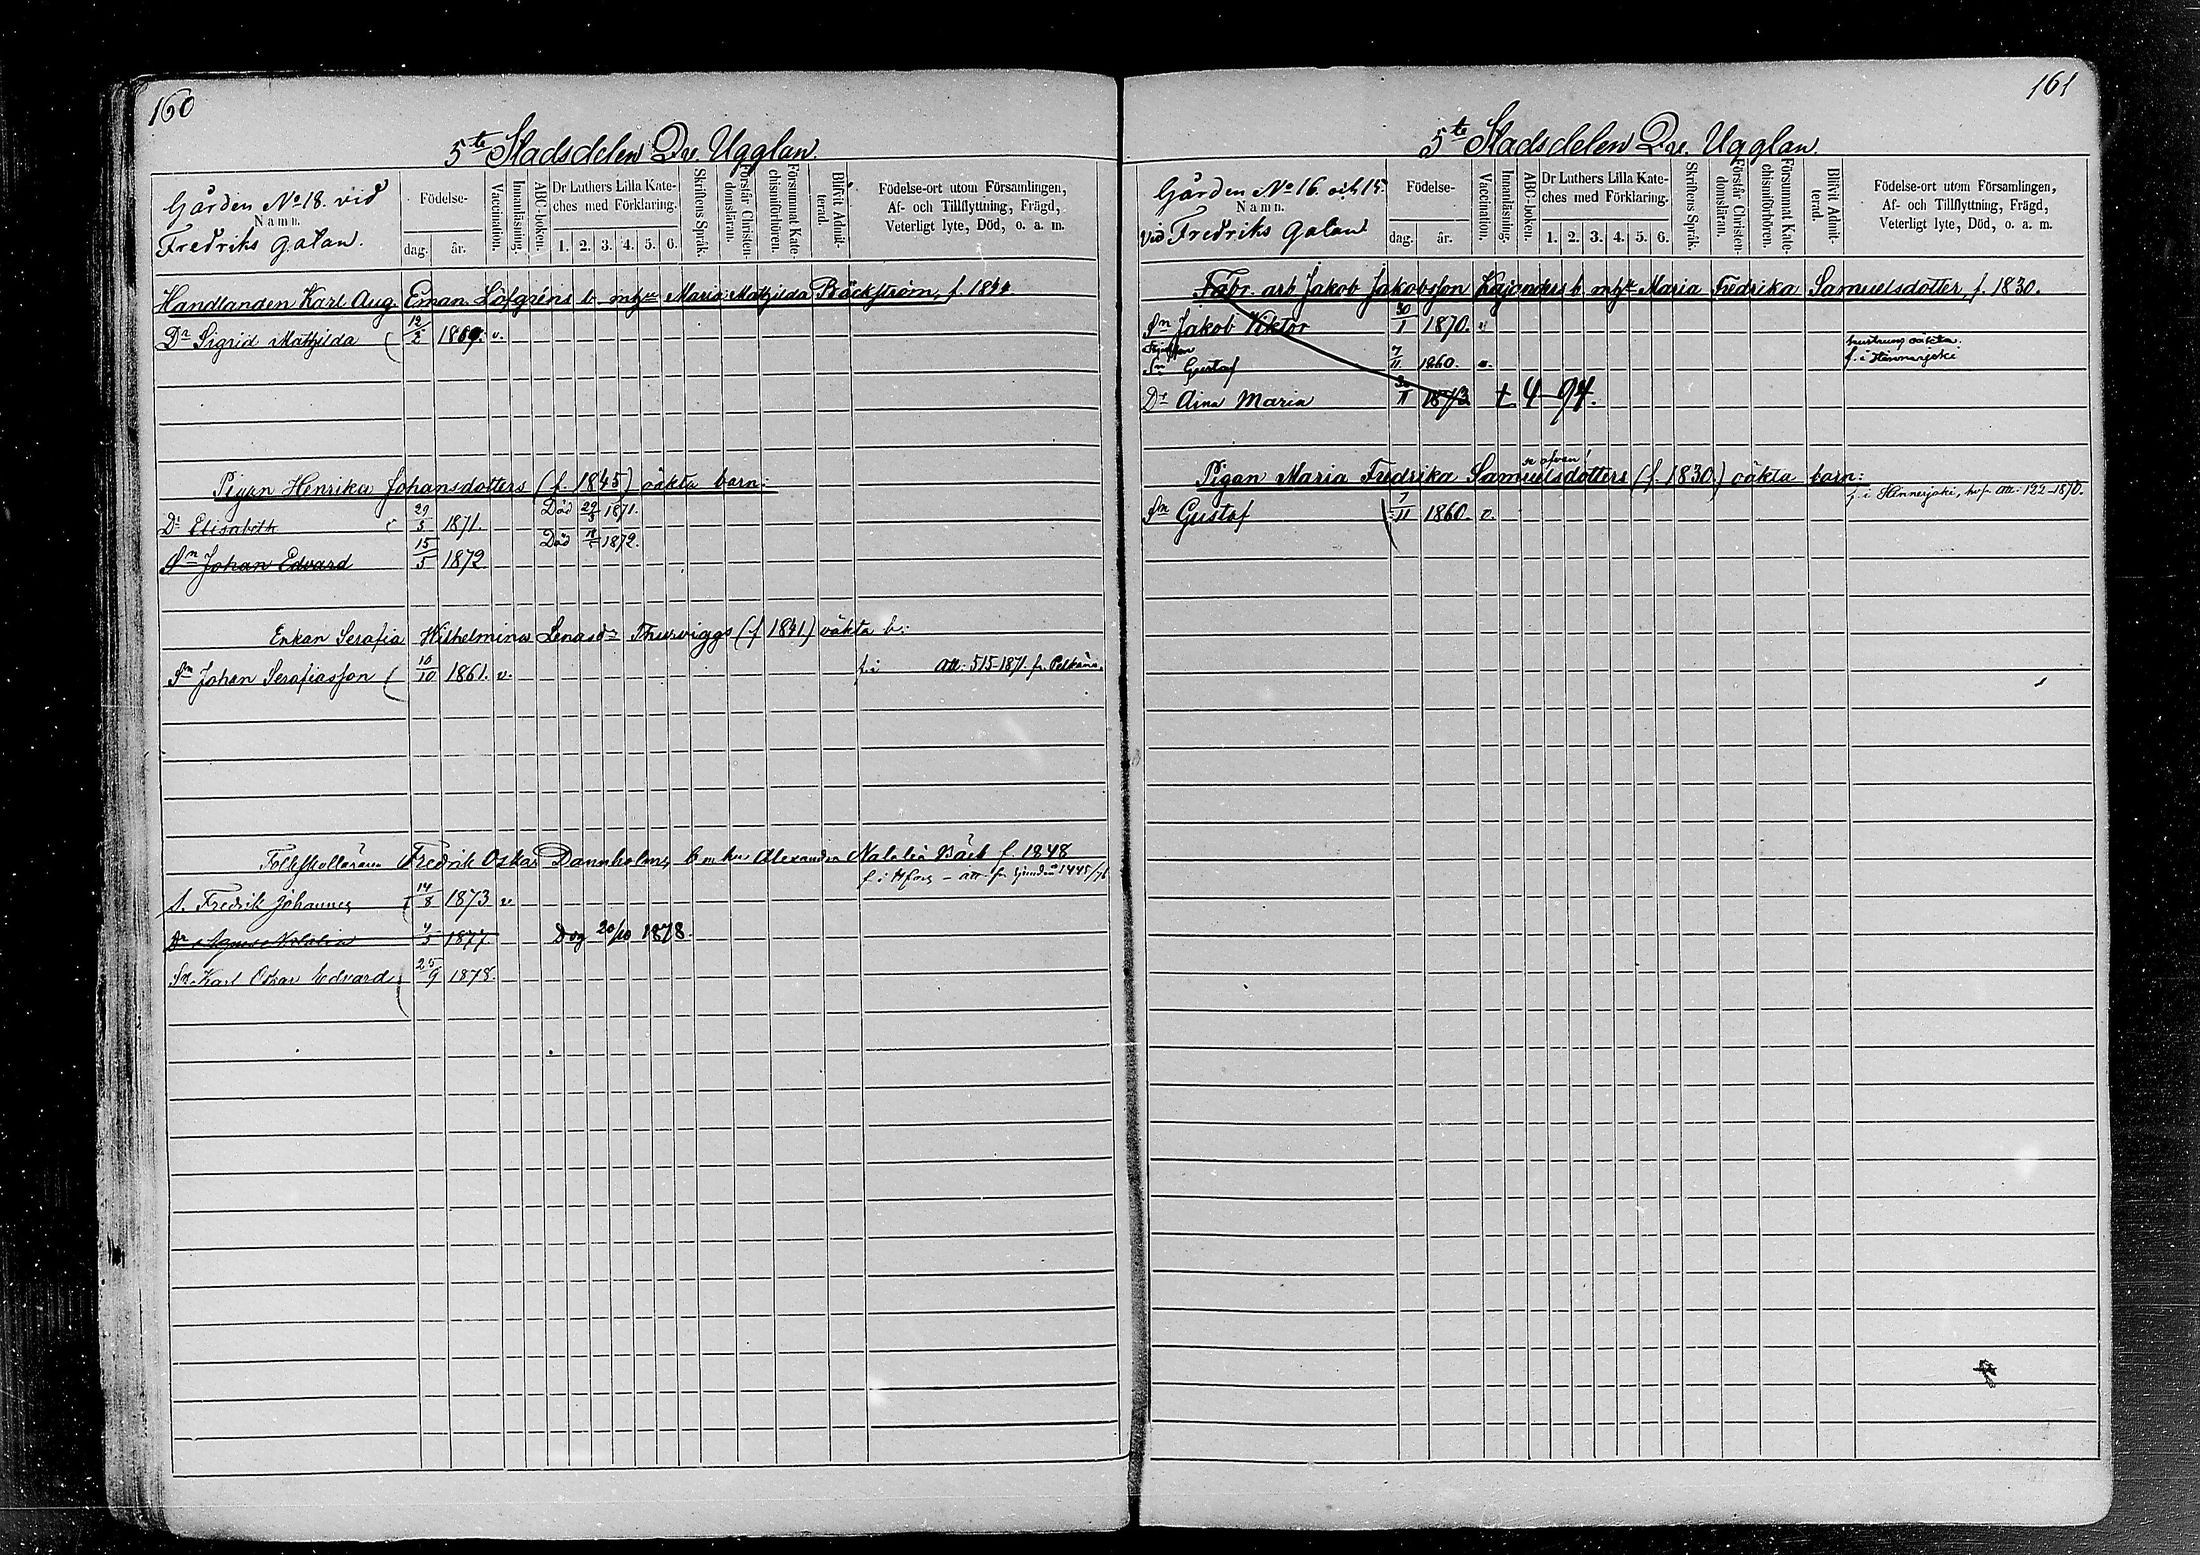 160
5te Stadsdelen Qv. Ugglan.
Gården No 18. vid
Namn.
Fredriks gatan.
Födelse-
dag. år.
Vaccination.
Innanläsning.
ABC-boken.
Dr Luthers Lilla Kate-
ches med Förklaring.
1. 2. 3. 4. 5. 6.
Skriftens Språk.
Förstår Christen-
domsläran.
Försummat Kate-
chismiförhören.
Blifvit Admit-
terad.
Födelse-ort utom Församlingen,
Af- och Tillflyttning, Frägd,
Veterligt lyte, Död, o. a. m.
Handlanden Karl Aug. Eman. Löfgréns b. mhu Maria Mathilda Bäckström, f. 1844
Dr Sigrid Mathilda 12/2 1869. v.
Pigan Henrika Johansdotters (f. 1845) oäkta barn:
Dr Elisabeth 29/3 1871. Död 29/3 1871.
Sn Johan Edvard 15/5 1872 Död 1872.
Enkan Serafia Wilhelmina Lenasdr Thurviggs (f 1841) oäkta b:
Sn Johan Serafiasson 10/10 1861. v. f. i Att: 515-1871. fr. Pelkäne.
Folkskolläraren Fredrik Oskar Dannholms b m hu Alexandra Natalia Bäck f. 1848
f. i Hfors - att. fr. 1445/76
S. Fredrik Johannes 14/8 1873 v
Dr Agnes Natalia 4/5 1877. Dog 20/10 1878.
Sn Karl Oskar Edvard 25/9 1878.
161
5te Stadsdelen Qv. Ugglan.
Gården No 16. och 15.
Namn.
Vid Fredriks gatan
Födelse-
dag. år.
Vaccination.
Innanläsning.
ABC-boken.
Dr Luthers Lilla Kate-
ches med Förklaring.
1. 2. 3. 4. 5. 6.
Skriftens Språk.
Förstår Christen-
domsläran.
Försummat Kate-
chismiförhören.
Blifvit Admit-
terad.
Födelse-ort utom Församlingen,
Af- och Tillflyttning, Frägd,
Veterligt lyte, Död, o. a. m.
Fabr. arb Jakob Jakobsson Kajanders b. mhu Maria Fredrika Samuelsdotter, f. 1830.
Sn Jakob Viktor 30/1 1870. v
hustruns oäkta.
Sn Gustaf 7/11 1860. v. f. i Hinnerjoki
Dr Aina Maria 1873 + 4-94.
se ofvan!
Pigan Maria Fredrika Samuelsdotters (f. 1830) oäkta barn:
Sn Gustaf 7/11 1860. v. f. i Hinnerjoki, Att: 122-1870.